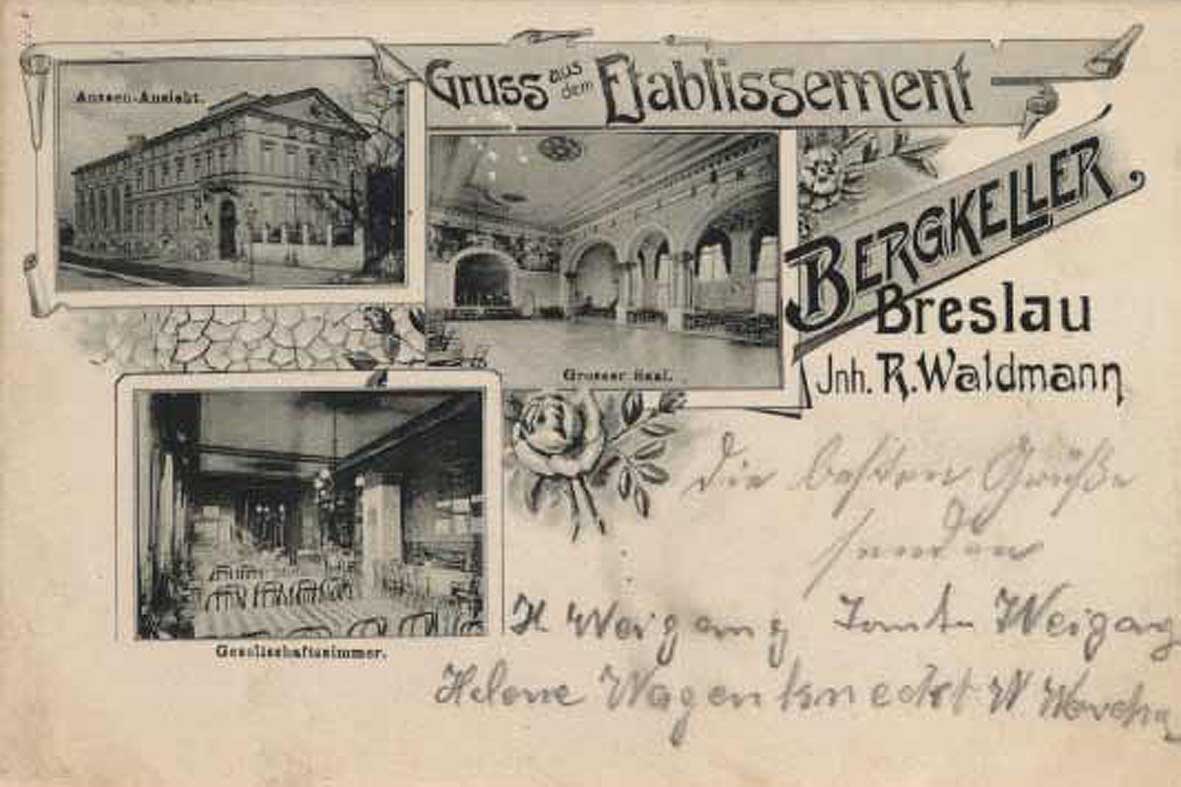 Gruss aus dem Etablissement
Aussen-Ansicht.
BERGKELLER
Breslau
Jnh. R. Waldmann
Grosser Saal.
Gesellschaftszimmer.
Die besten Grüße
senden
H. Weigang Weigang
Helene Wagenknecht W